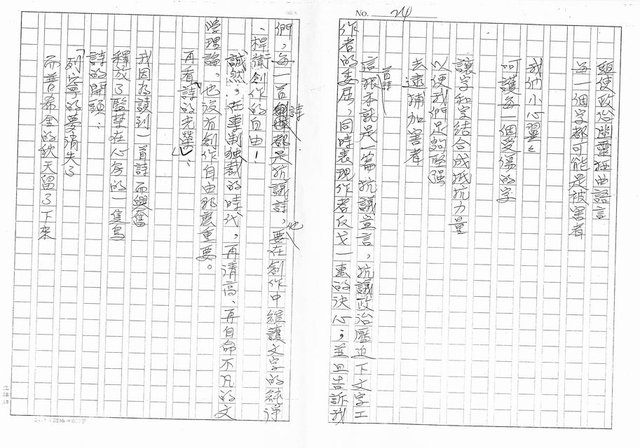 No. 24
驅使政治幽靈扭曲語言
每一個字都可能是被害者
我們小心翼翼
呵護每一個受傷的字
讓字和字結合成抵抗力量
以便我們足夠堅強
去逮捕加害者
這首詩根本就是一篇抗議宣言，抗議政治壓迫下文字工
作者的委屈，同時表現作者反戈一擊的決心；並且告訴我
們，每一首詩都是抗議詩，要在創作中維護文字的純淨
，捍衛創作的自由！
誠然，在專制獨裁的時代，再清高、再自命不凡的文
學理論，也沒有創作自由那麼重要。
再看詩的光榮
我因為讀到一首詩而興奮
釋放了監禁在心房的一隻鳥
詩的開頭：
「列寧的夢消失了
而普希金的秋天留了下來